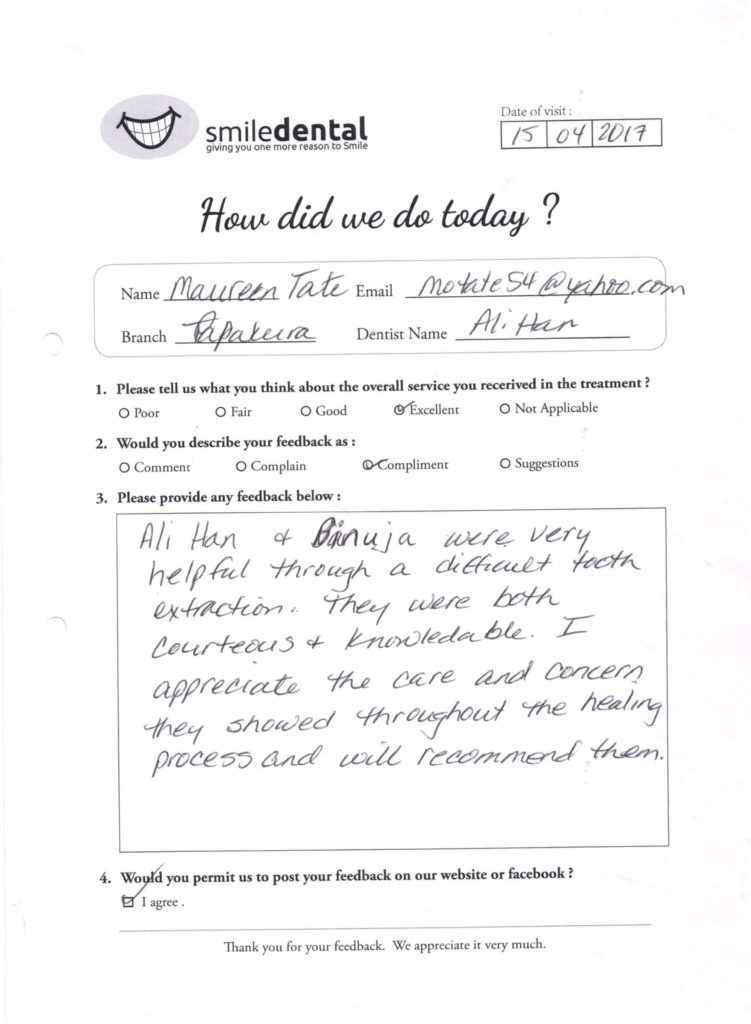 smiledental
giving you one more reason to Smile
Date of visit :
15 04 2017
How did we do today ?
Name Maureen Tate Email motate54@yahoo.com
Branch Papakura Dentist Name Ali Han
1. Please tell us what you think about the overall service you recerived in the treatment ?
Poor Fair Good Excellent Not Applicable
2. Would you describe your feedback as :
Comment Complain Compliment Suggestions
3. Please provide any feedback below :
Ali Han & Binuja were very
helpful through a difficult tooth
extraction. They were both
courteous & knowledable. I
appreciate the care and concern
they showed throughout the healing
process and will recommend them.
4. Would you permit us to post your feedback on our website or facebook ?
I agree .
Thank you for your feedback. We appreciate it very much.